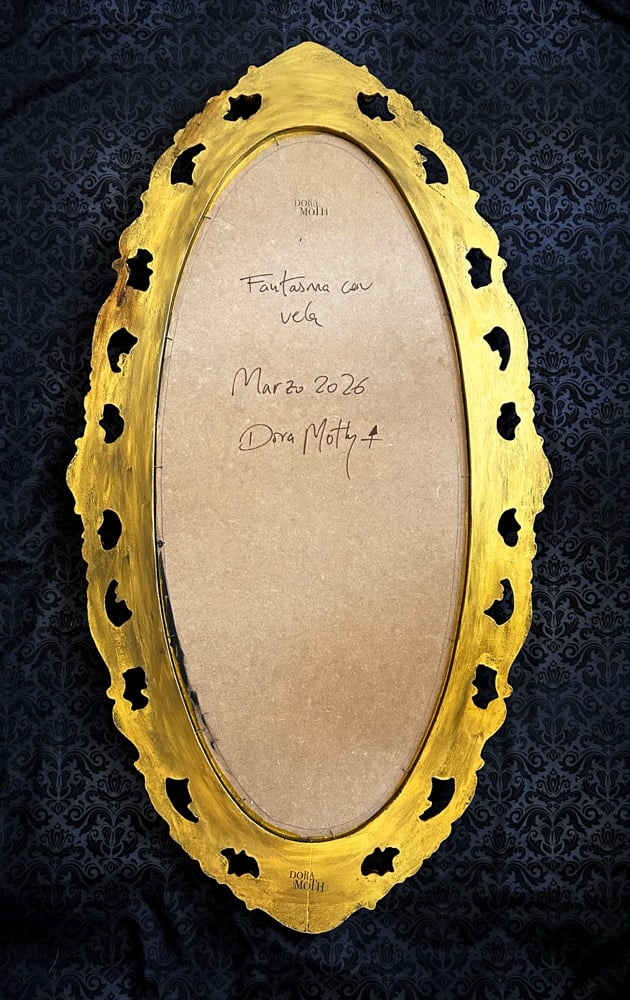 DORA
MOTH
Fantasma con
vela
Marzo 2026
Dora Moth
DORA
MOTH